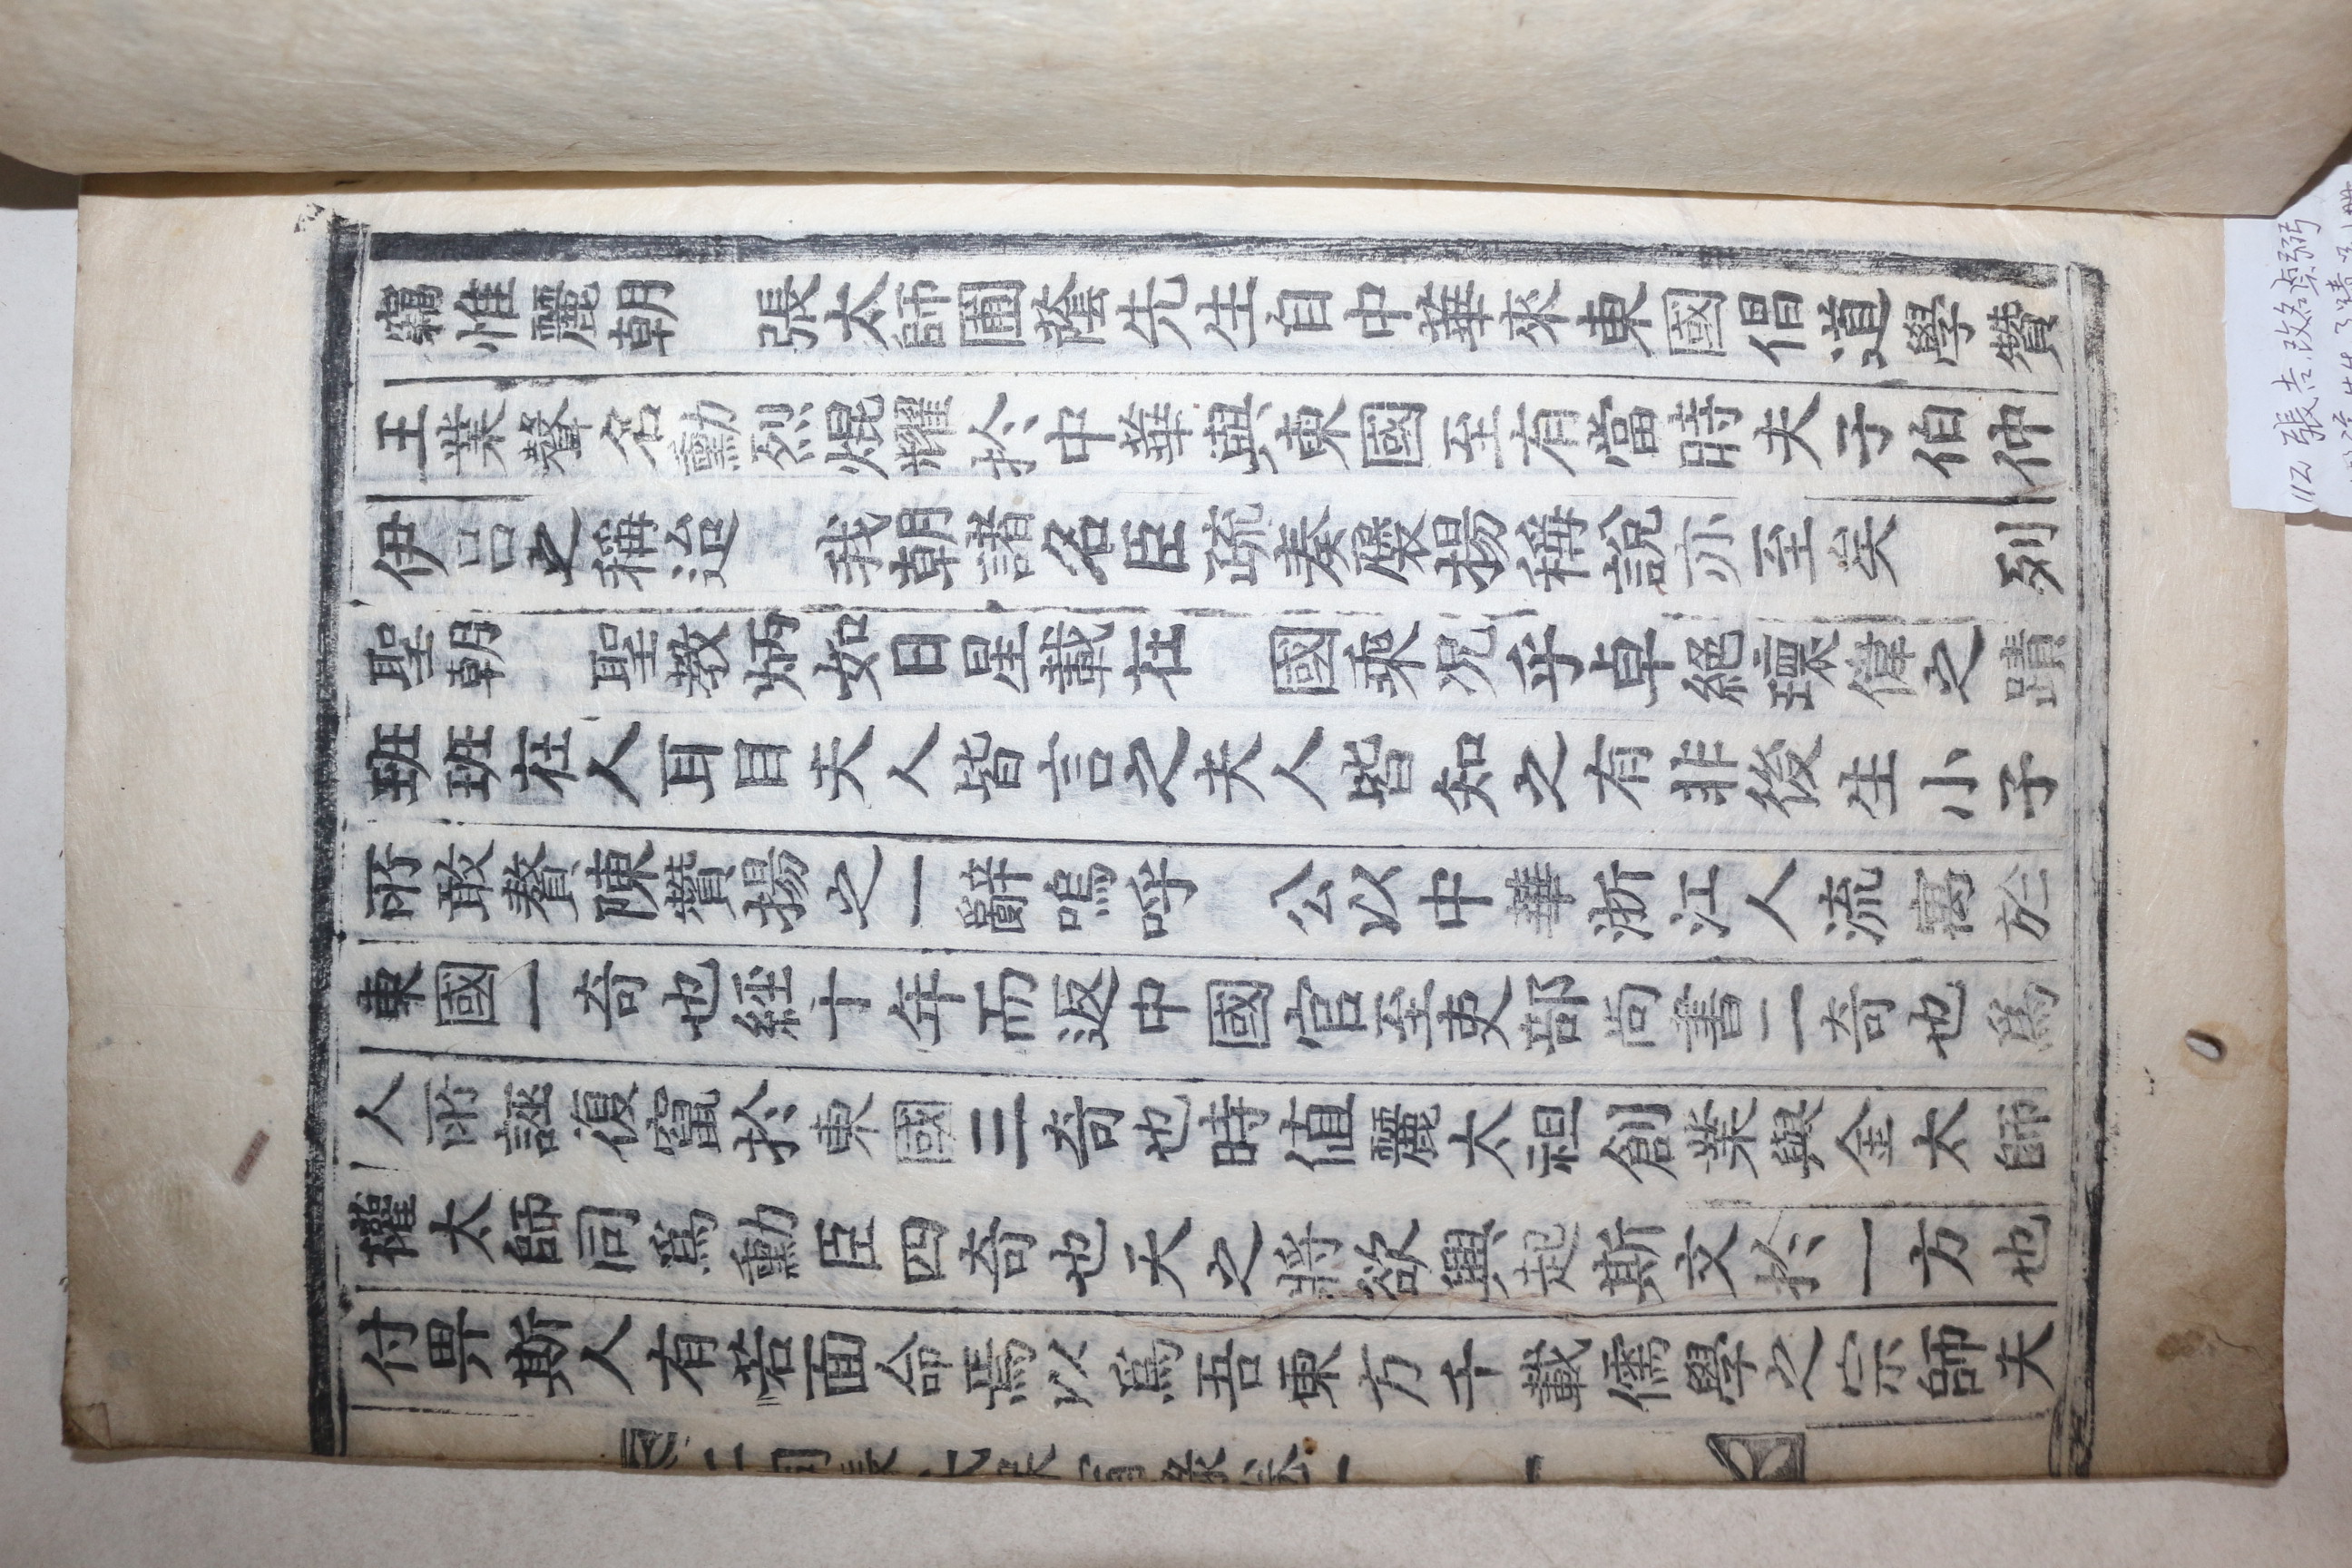 竊惟麗朝　張太師圃蔭先生自中華來東國倡道學贊
王業聲名勳烈焜耀於中華與東國至有當時夫子伯仲
伊呂之稱迨　我朝諸名臣疏奏褒揚稱說亦至矣　列
聖朝　聖敎炳如日星載在　國乘况乎卓絶瓌偉之蹟
班班在人耳目夫人皆言之夫人皆知之有非後生小子
所敢贅陳讚揚之一辭嗚呼　公以中華浙江人流寓於
東國一奇也經十年而返中國官至吏部尚書二奇也爲
人所誣復竄於東國三奇也時値麗太祖創業與金太師
權太師同爲勳臣四奇也天之將欲興起斯文於一方也
付畀斯人有若面命焉以爲吾東方千載儒學之宗師夫
112 張吉改名